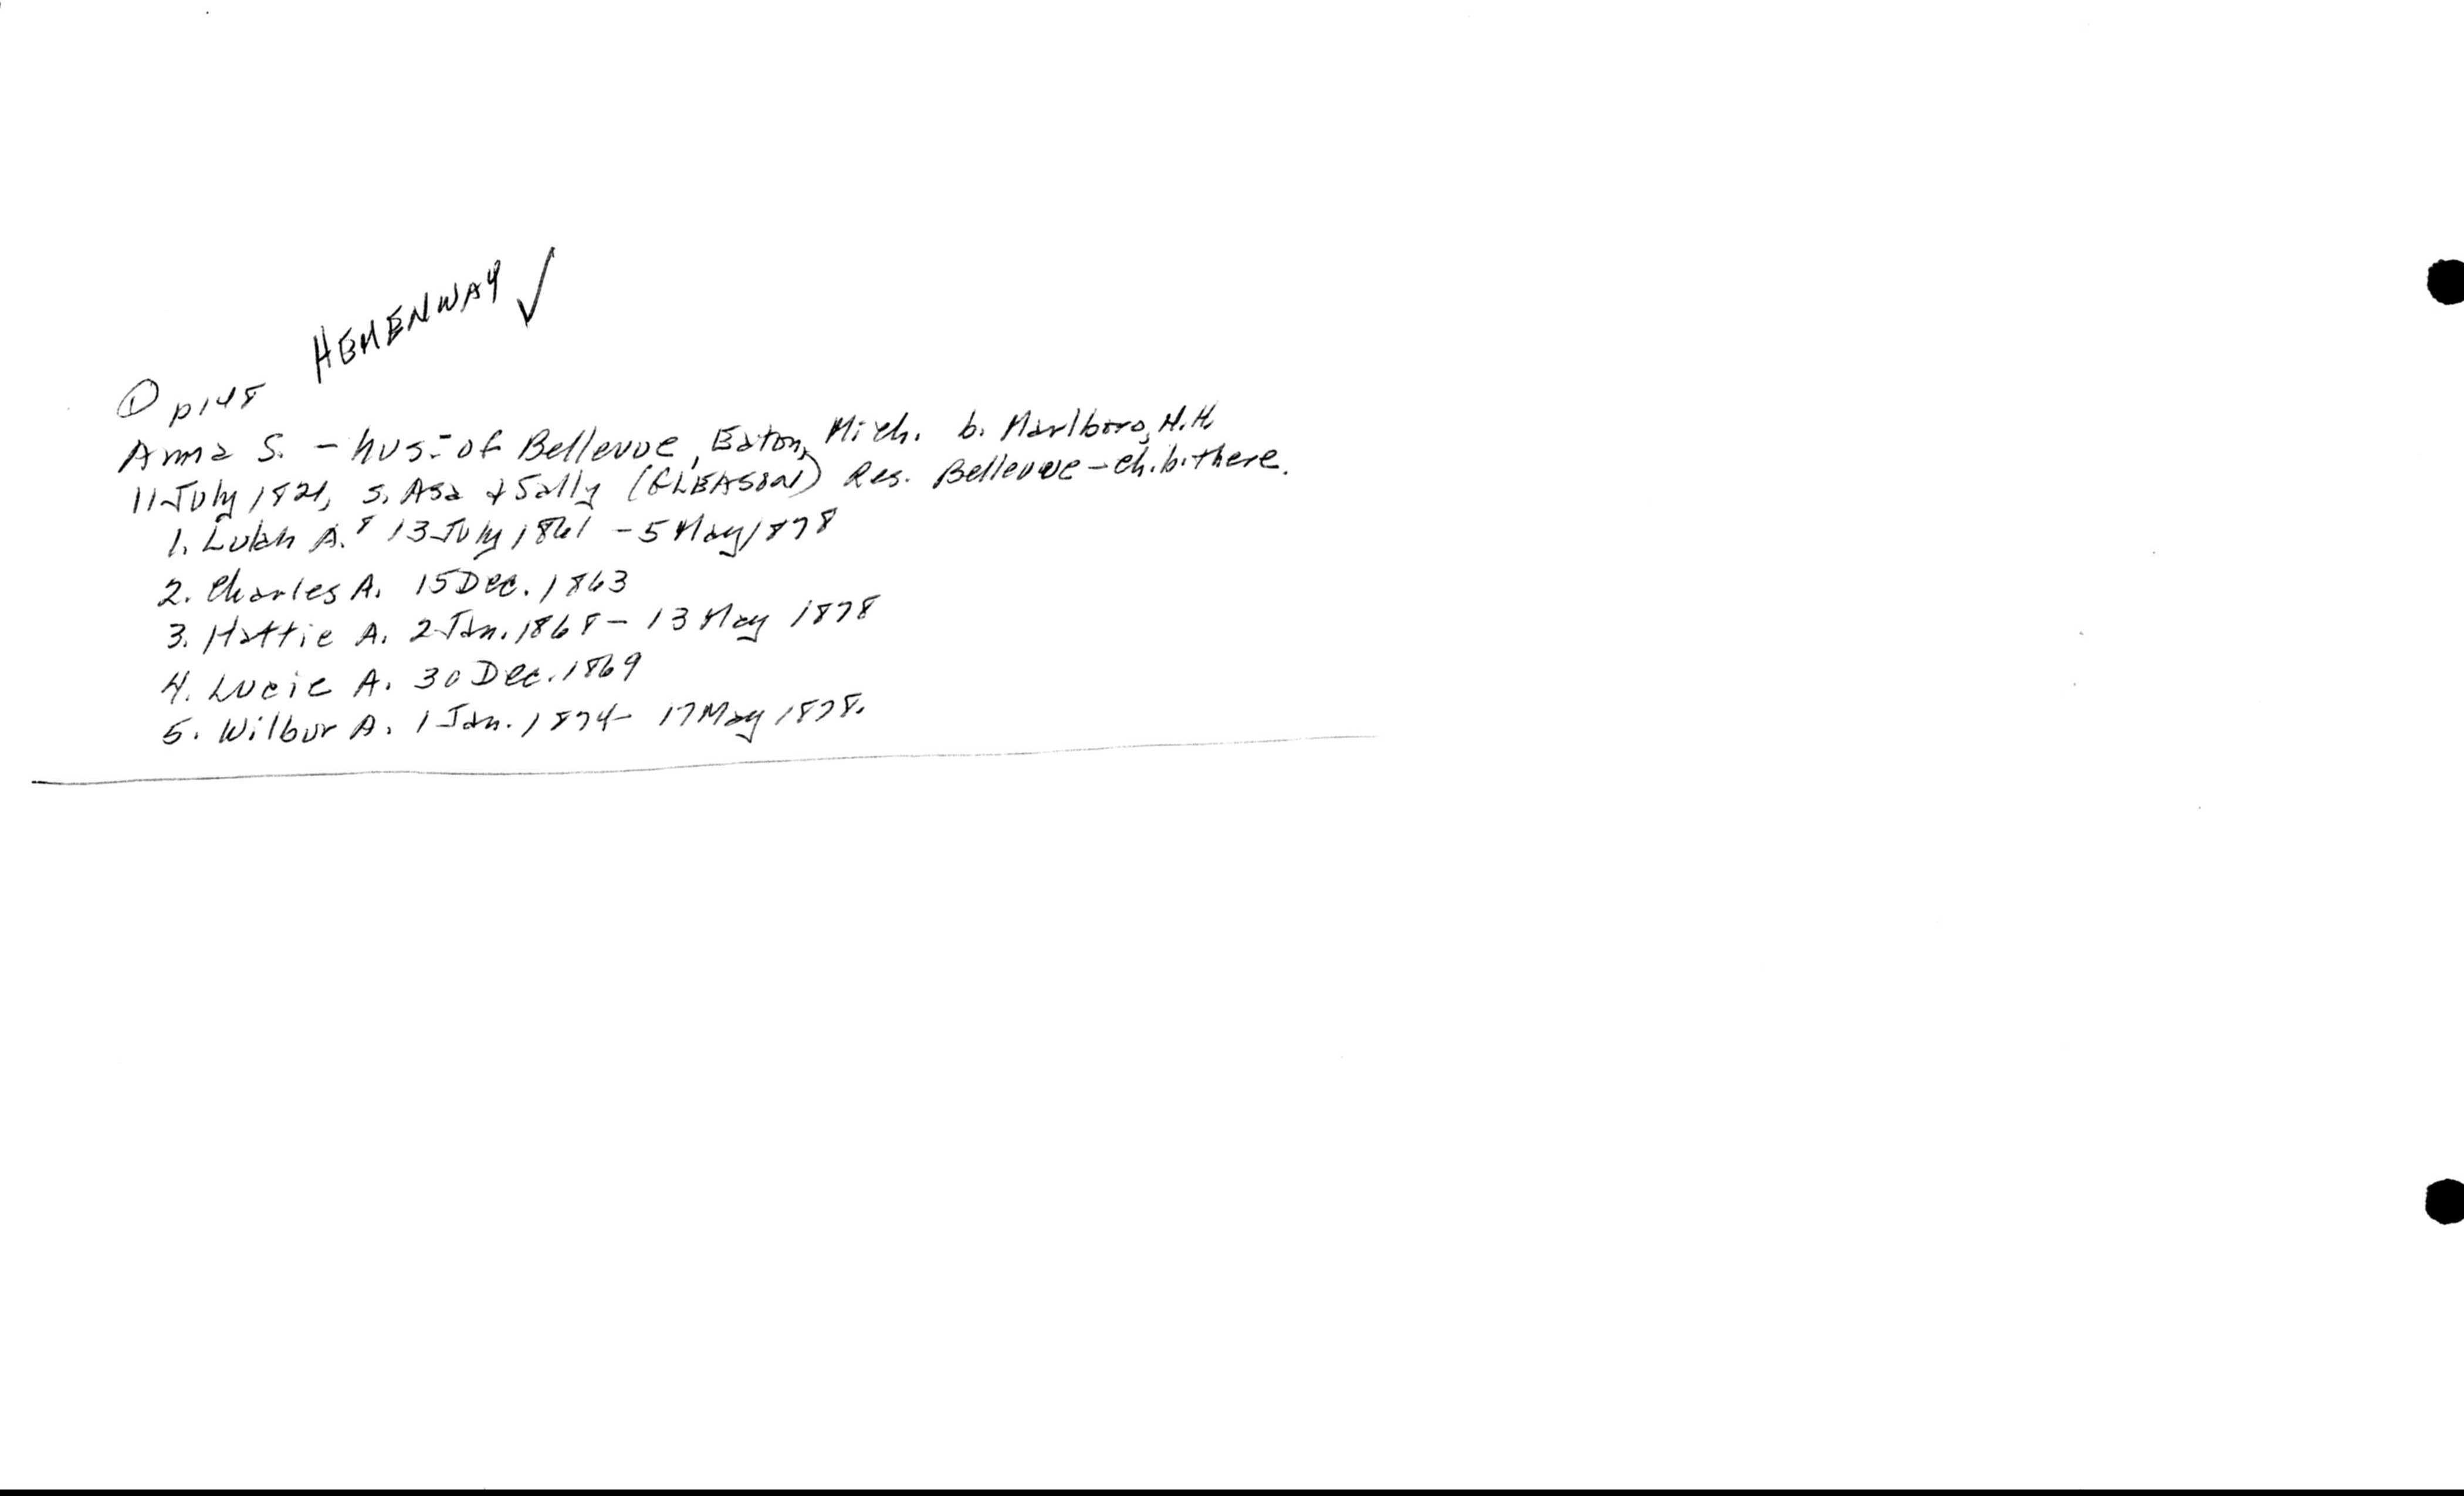 HEMENWAY ✓
① p148
Anna S. - hus. of Bellevue, Eaton, Mich. b. Marlboro, N.H.
11 July 1821, s. Asa & Sally (GLEASON) Res. Bellevue - ch. b. there.
1. Lukh A.⁸ 13 July 1861 - 5 May 1878
2. Charles A. 15 Dec. 1863
3. Hattie A. 2 Jan. 1868 - 13 May 1878
4. Lucie A. 30 Dec. 1869
5. Wilbur A. 1 Jan. 1874 - 17 May 1878.